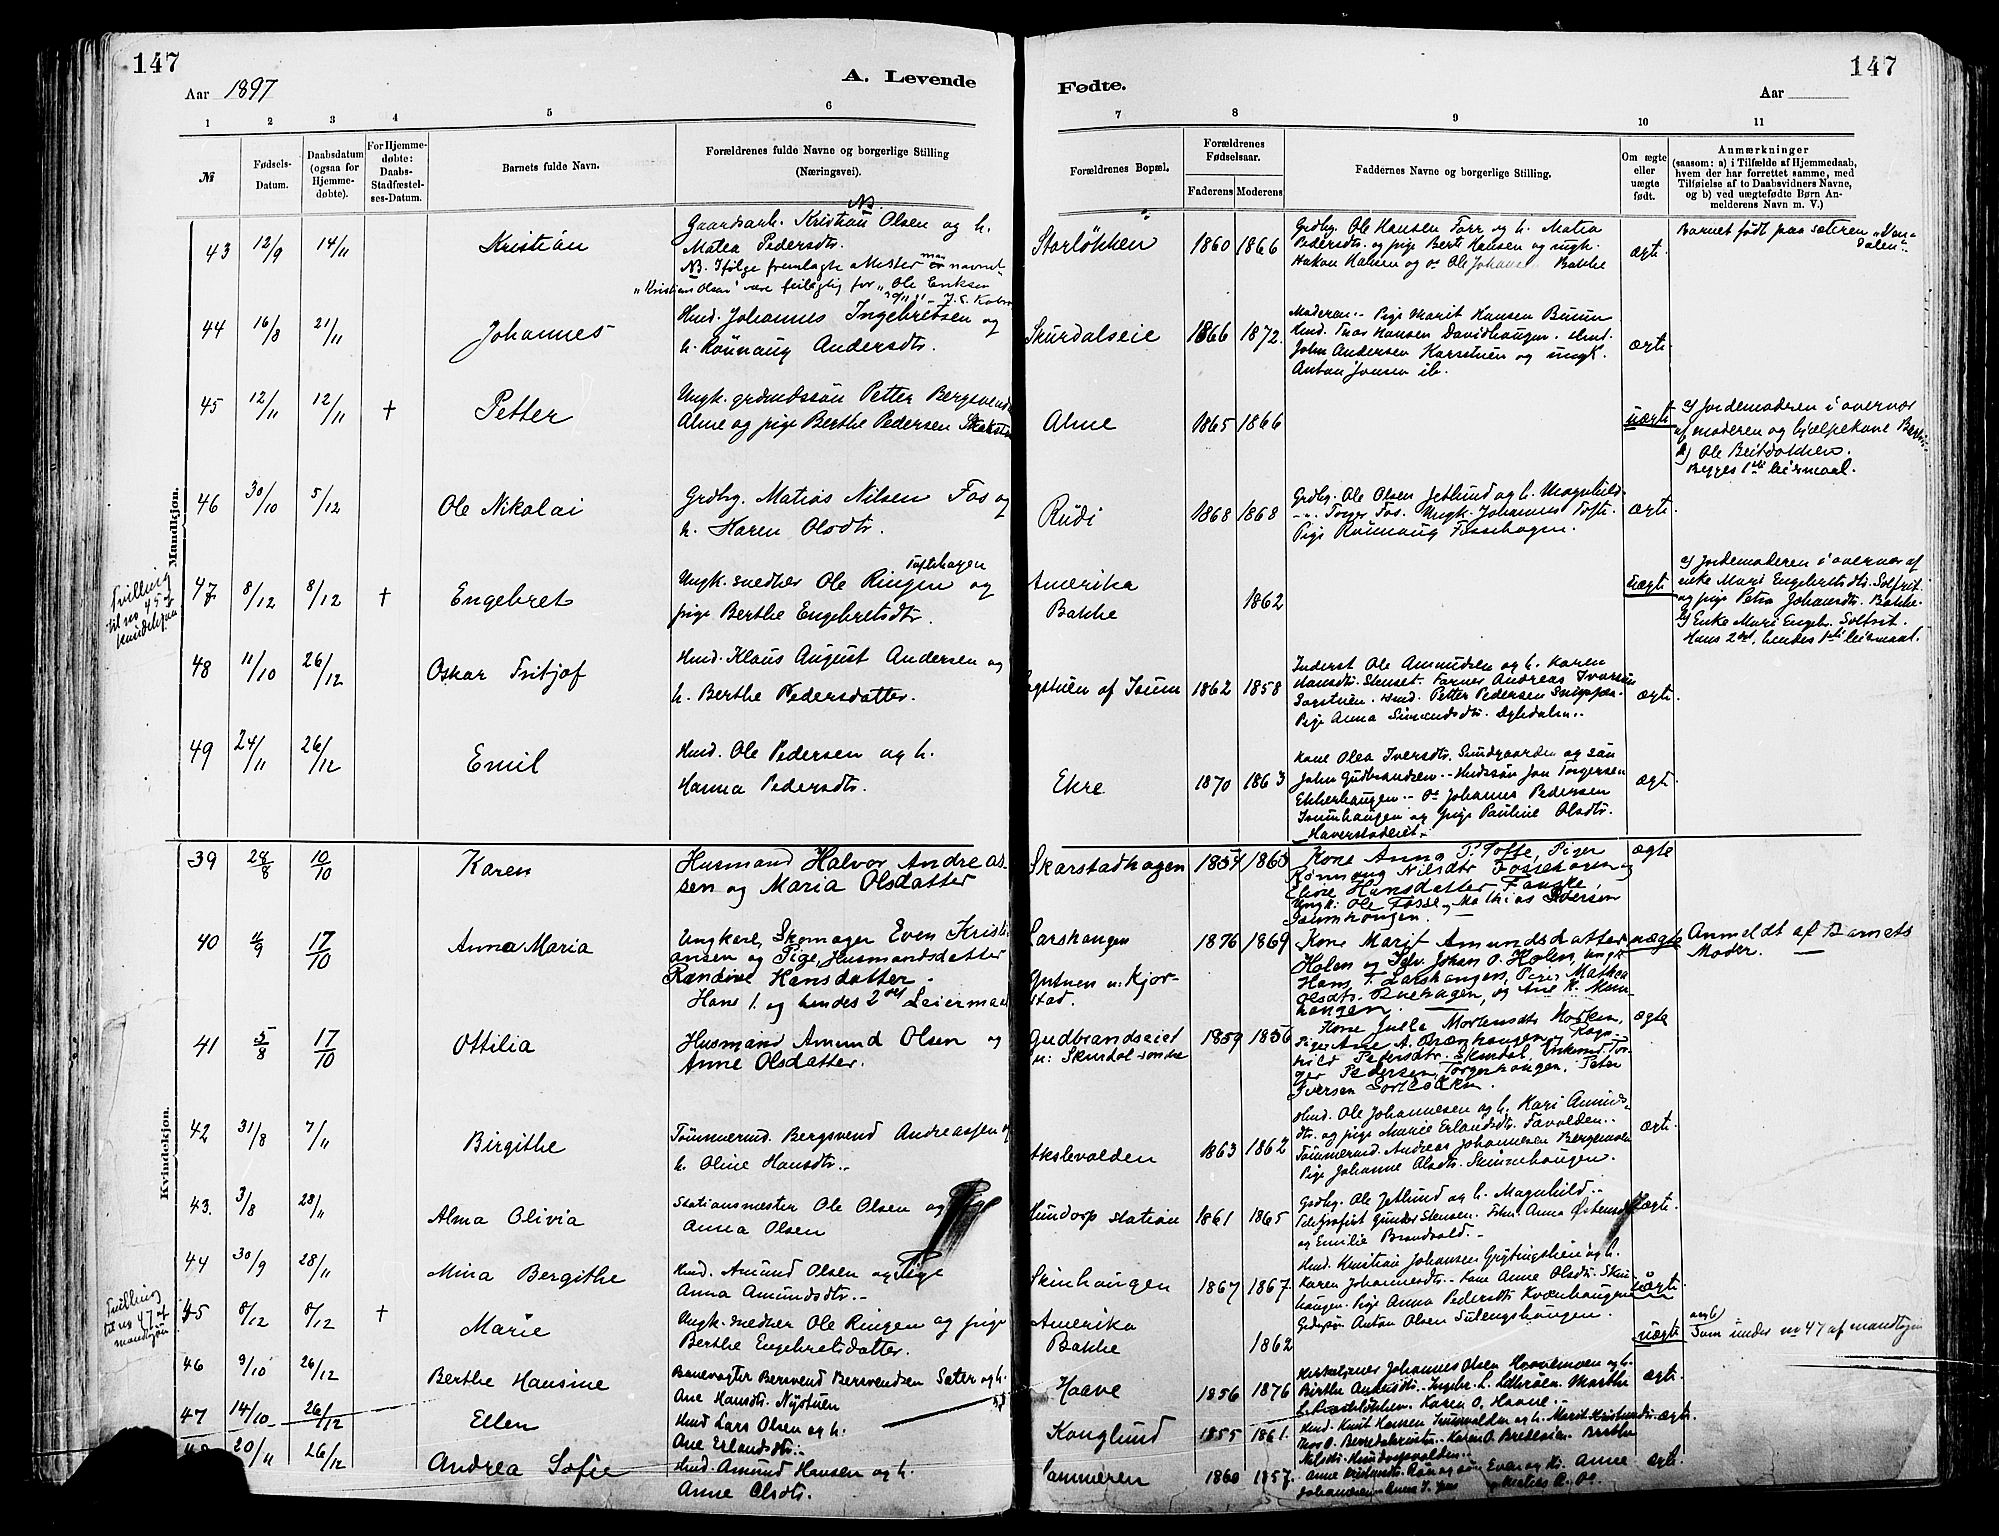 147
Aar 1897
A. Levende
Fødte.
Aar
147
1 2 3 4 5 6 7 8 9 10 11
№
Fødsels-
Datum.
Daabsdatum
(ogsaa for
Hjemme-
døbte).
For Hjemme-
døbte:
Daabs-
Stadfæstel-
ses-Datum.
Barnets fulde Navn.
Forældrenes fulde Navne og borgerlige Stilling
(Næringsvei).
Forældrenes Bopæl.
Forældrenes
Fødselsaar.
Faderens Moderens
Faddernes Navne og borgerlige Stilling.
Om ægte
eller
uægte
født.
Anmærkninger
(saasom: a) i Tilfælde af Hjemmedaab,
hvem der har forrettet samme, med
Tilføielse af to Daabsvidners Navne,
og b) ved uægtefødte Børn An-
melderens Navn m. V.)
Mandkjøn.
43 12/9 14/11 Kristian
NB.
Gaardsarb. Kristian Olsen og h.
Matea Pedersdtr.
NB. Ifølge fremlagte
"Kristian Olsen" være feilagtig for "Ole Eriksen
Storløkken 1860 1866
Grdbg. Ole Hansen Forr og h. Matea
Pedersdtr. og pige Berit Hansen og ungk.
Hakon Hansen og Ole Johansen Bakke
ægte
Barnet født paa sæteren
44 16/8 21/11 Johannes
Hmd. Johannes Ingebretsen og
h. Rønnaug Andersdtr.
Skurdalseie 1866 1872.
Moderen. Pige Marit Hansen Buum
Hmd. Hansen Davidhaugen.
John Andersen Karsstuen og ungk.
Anton Jonsen ib.
ægte
45 12/11 12/11 † Petter
Ungk. grdmandssøn Petter Bergsvends.
Alme og pige Berthe Pedersen
Alme 1865 1866
uægte
a) Jordemoderen i overvær
af moderen og hjælpekone
b) Ole
Begges 1ste leiermaal.
46 30/10 5/12 Ole Nikolai
Grdbg. Matias Nilsen Fos og
h. Karen Olsdtr.
Rudi 1868 1868
Grdbg. Ole Olsen Jetlund og h. Magnhild.
Torger Fos. Ungk. Johannes Tofte.
Pige Rønnaug Fossehagen.
ægte
Tvilling
til no
45 af
kvindekjøn
47 8/12 8/12 † Engebret
Toftehagen
Ungk. snedker Ole Ringen og
pige Berthe Engebretsdtr.
Amerika
Bakke 1862
uægte
a) Jordemoderen i overvær af
enke Mari Engebretsdtr. Solfrit
og pige Petra Johansdtr. Bakke.
b) Enke Mari Engeb. Solfrit.
Hans 2det, hendes 1ste leiermaal.
48 11/10 26/12 Oskar Fritjof
Hmd. Klaus August Andersen og
h. Berthe Pedersdatter.
Sagstuen af Isum 1862 1858
Inderst Ole Amundsen og h. Karen
Hansdtr. Stenset. Garver Andreas Iversen
Sagstuen. Hmd. Petter Pedersen
Pige Anna Simensdtr.
ægte
49 24/11 26/12 Emil
Hmd. Ole Pedersen og h.
Hanna Pedersdtr.
Ekre 1870 1863
Kone Olea Iversdtr. Sundgaarden og søn
John Gudbrandsen. Hmdssøn Jon Torgersen
Ekkerhaugen. Johannes Pedersen
Isumhaugen og pige Pauline Olsdtr.
Haverstadeiet.
ægte
Kvindekjøn.
39 28/8 10/10 Karen
Husmand Halvor Andreas-
sen og Maria Olsdatter
Skarstadhagen 1854 1863
Kone Anna P. Tofte, Piger
Rønnaug Nilsdtr Fossehagen og
Eline Hansdatter Fauske,
Ungk: Ole Fosse, Mathias Pedersen
Isumhaugen.
ægte
40 4/9 17/10 Anna Maria
Ungkarl, Skomager Even Kristi-
ansen og Pige, Husmandsdatter
Randine Hansdatter.
Hans 1. og hendes 2det Leiermaal
Larshaugen
Nystuen u. Kjor-
stad. 1876 1869
Kone Marit Amundsdatter
Holen og Selv. Johan O. Holen, Ungk
Hans T. Larshaugen, Pige Mathea
Olsdtr. Ruehagen, og Ane K.
haugen.
uægte
Anmeldt af Barnets
Moder.
41 5/8 17/10 Ottilia
Husmand Amund Olsen og
Anne Olsdatter.
Gudbrandseiet
u: Skurdal søndre 1859 1856
Kone Julla Mortensdtr Morken,
Piger Ane A. Brænhaugen, Ragn-
hild Pedersdtr. Skurdal, Ungkmd. Tor-
ger Pedersen, Torgerhaugen, Peter
Iversen
ægte
42 31/8 7/11 Birgithe
Tømmermd. Bergsvend Andreassen og
h. Oline Hansdtr.
Akslevolden 1863 1862
Hmd. Ole Johannesen og h. Kari Amunds-
dtr. og pige Marie Erlandsdtr. Tavolden.
Tømmermd. Andreas Johannesen Bergemoen
Pige Johanne Olsdtr. Skinnhaugen.
ægte
43. 3/8 28/11 Alma Olivia
Stationsmester Ole Olsen og
Anna Olsen
Hundorp station 1861 1865
Grdbg. Ole Jetlund og h. Magnhild.
Telegrafist Gunder Stensen. Frkn. Anna
og Emilie Brandvold.
ægte
44 30/9 28/11 Mina Bergithe
Hmd. Amund Olsen og Pige
Anna Amundsdtr.
Skinhaugen 1867 1867.
Hmd. Kristian Johansen Grytingslien og h.
Karen Johannesdtr. Kone Anne Olsdtr. Skin-
haugen. Pige Anna Pedersdtr Kvænhaugen
Anton Olsen Tulengshaugen.
uægte
Tvilling
til no 47 af
mandkjøn
45 8/12 8/12 † Marie
Ungk. snedker Ole Ringen og pige
Berthe Engebretsdatter.
Amerika
Bakke 1862
uægte
a og b)
Som under no 47 af mandkjøn
46 9/10 26/12 Berthe Hansine
Banevogter Bersvend Bersvendsen Sæter og h.
Ane Hansdtr. Nystuen
Haave 1856 1876
Kirketjener Johannes Olsen Hovnemoen og h.
Birthe Andersdtr. Marthe
Karen O. Haave.
ægte
47 14/10 26/12 Ellen
Hmd Lars Olsen og h.
Ane Erlandsdtr.
Konglund 1855 1861.
Hmd. Knut Hansen og h. Marit Kristensdtr.
Thor O. Karen O. Bredevien. Berthe
Nilsdtr. Hundorpvolden.
ægte
48 20/11 26/12 Andrea Sofie
Hmd. Amund Hansen og h.
Anne Olsdtr.
1860 1857.
Anne
ægte